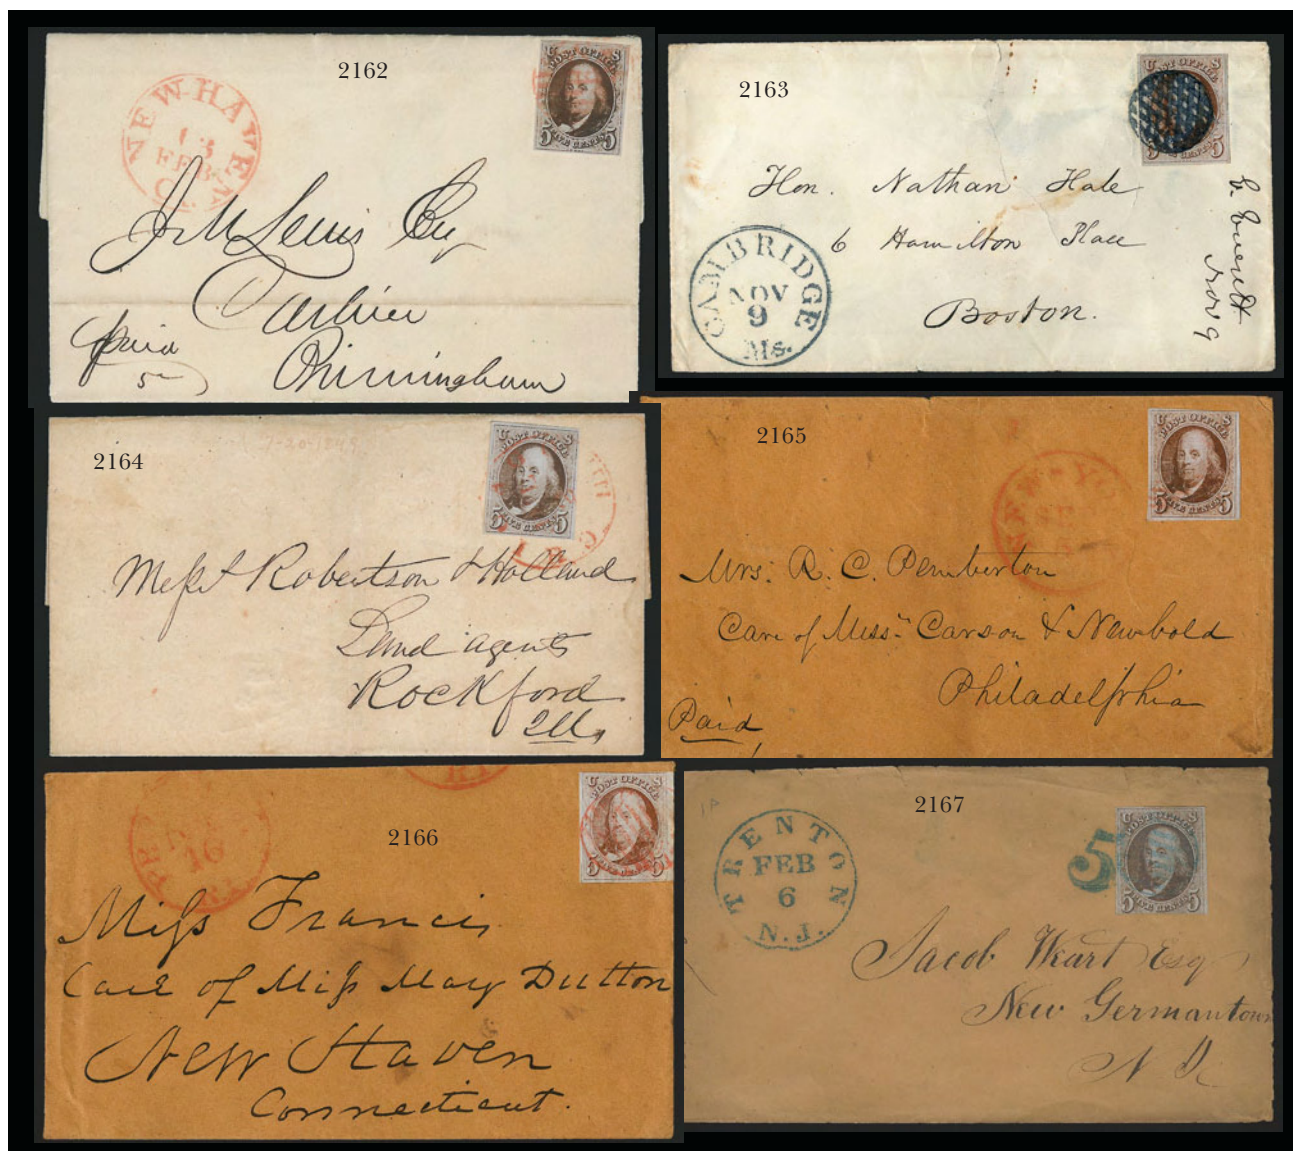 2162
NEW-HAVEN
13
FEB
U S
POST OFFICE
5 5
FIVE CENTS
J M Lewis Esq
Cashier
Birmingham
paid
5
2163
U S
POST OFFICE
5
FIVE CENTS
Hon. Nathan Hale
6 Hamilton Place
Boston.
CAMBRIDGE
NOV
9
Ms.
E. Everett
Nov 9
2164
7-20-1848
U S
POST OFFICE
5 5
FIVE CENTS
Messrs Robertson & Holland
Land agents
Rockford
Ills,
2165
NEW-YO
U S
POST OFFICE
5 5
FIVE CENTS
Mrs. R. C. Pemberton
Care of Messrs Carson & Newbold
Philadelphia
Paid
2166
16
U S
POST OFFICE
5 5
FIVE CENTS
Miss Francis,
Care of Miss Mary Dutton
New Haven
Connecticut.
2167
TRENTON
FEB
6
N.J.
5
U S
POST OFFICE
5 5
FIVE CENTS
Jacob Wart Esq
New Germantown
N J.